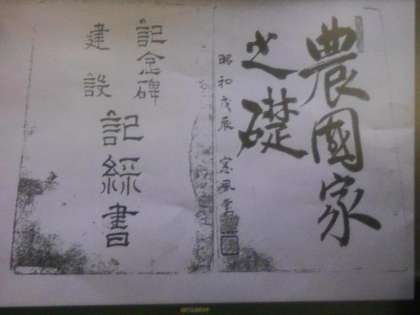 農國家
之礎
昭和戊辰
記念碑
建設
記經書